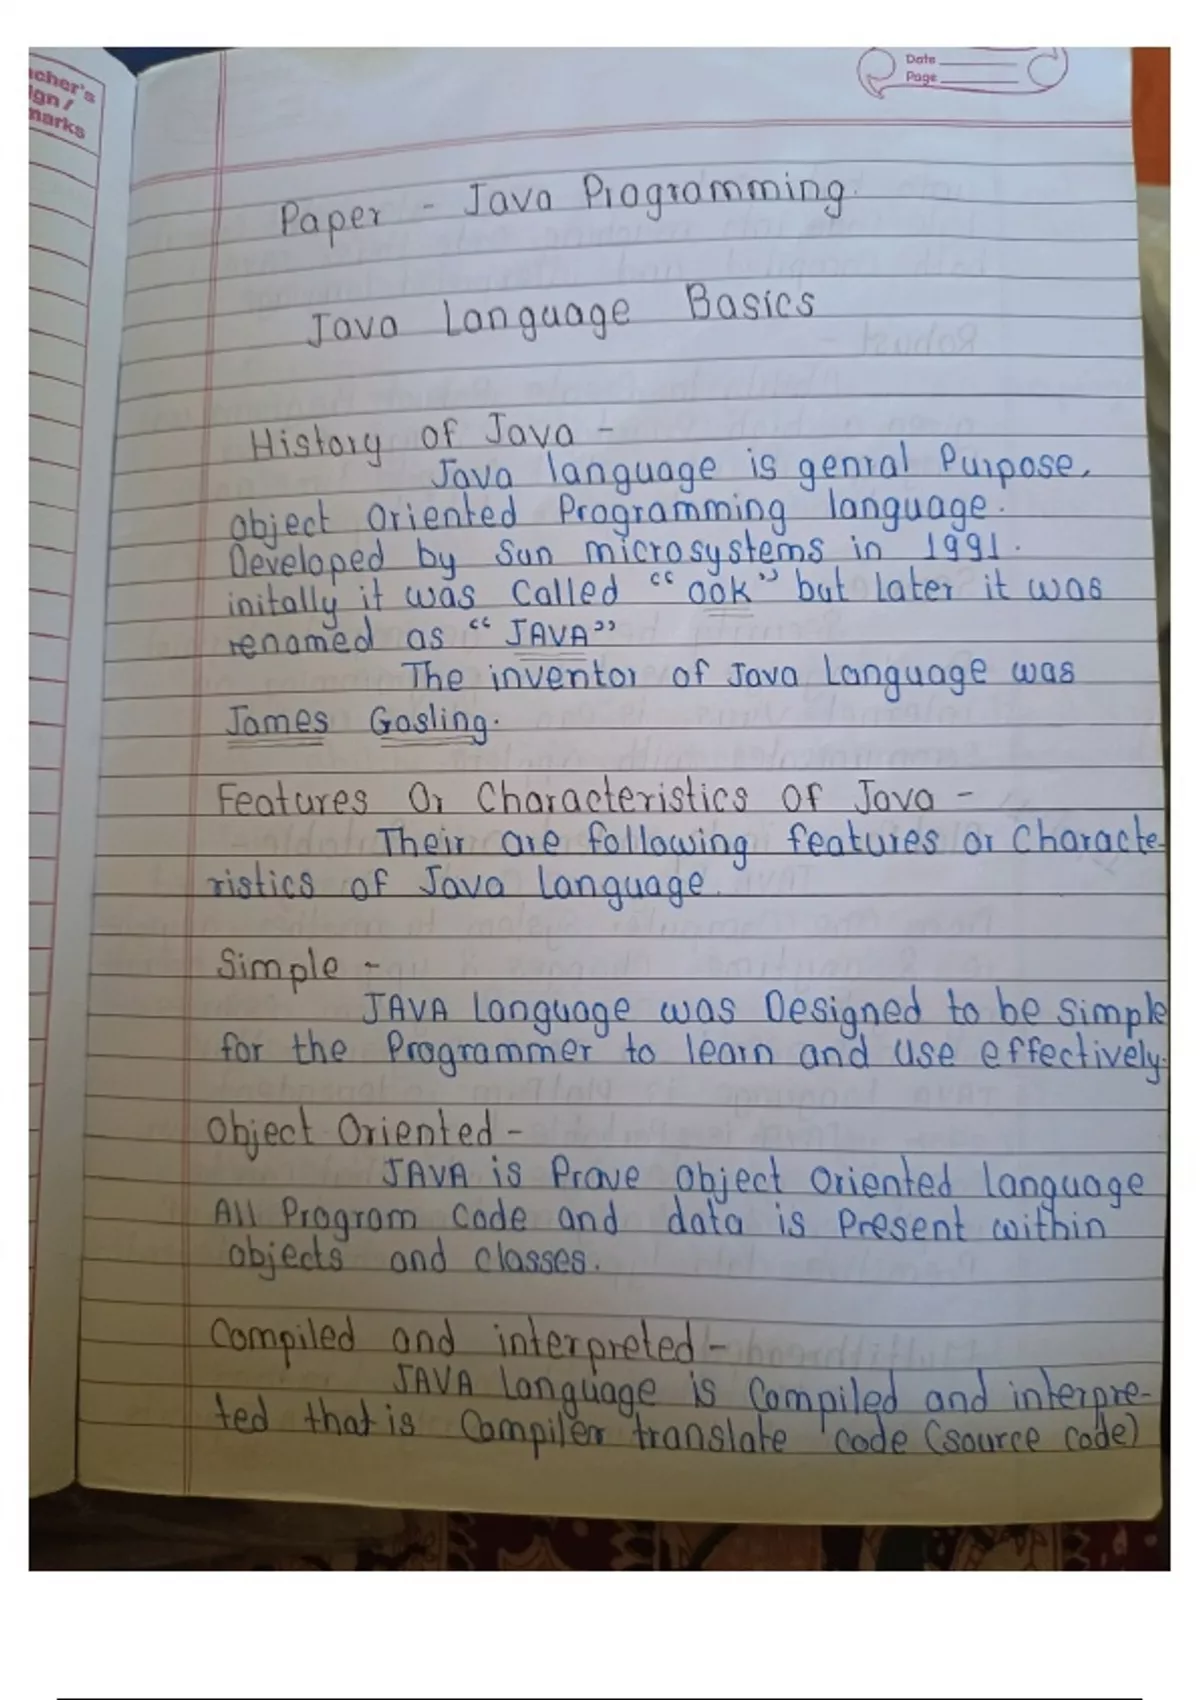 acher's
ign /
marks
Date
Page
Paper - Java Programming.
Java Language Basics
History of Java -
Java language is genral Purpose,
object Oriented Programming language.
Developed by Sun microsystems in 1991.
initally it was Called "ook" but later it was
renamed as "JAVA"
The inventor of Java Language was
James Gosling.
Features Or Characteristics of Java -
Their are following features or Characte-
ristics of Java language.
Simple -
JAVA Language was Designed to be simple
for the Programmer to learn and use effectively.
Object Oriented -
JAVA is Prove object oriented language
All Program Code and data is Present within
objects and classes.
Compiled and interpreted -
JAVA Language is Compiled and interpre-
ted that is Compiler translate code (source code)